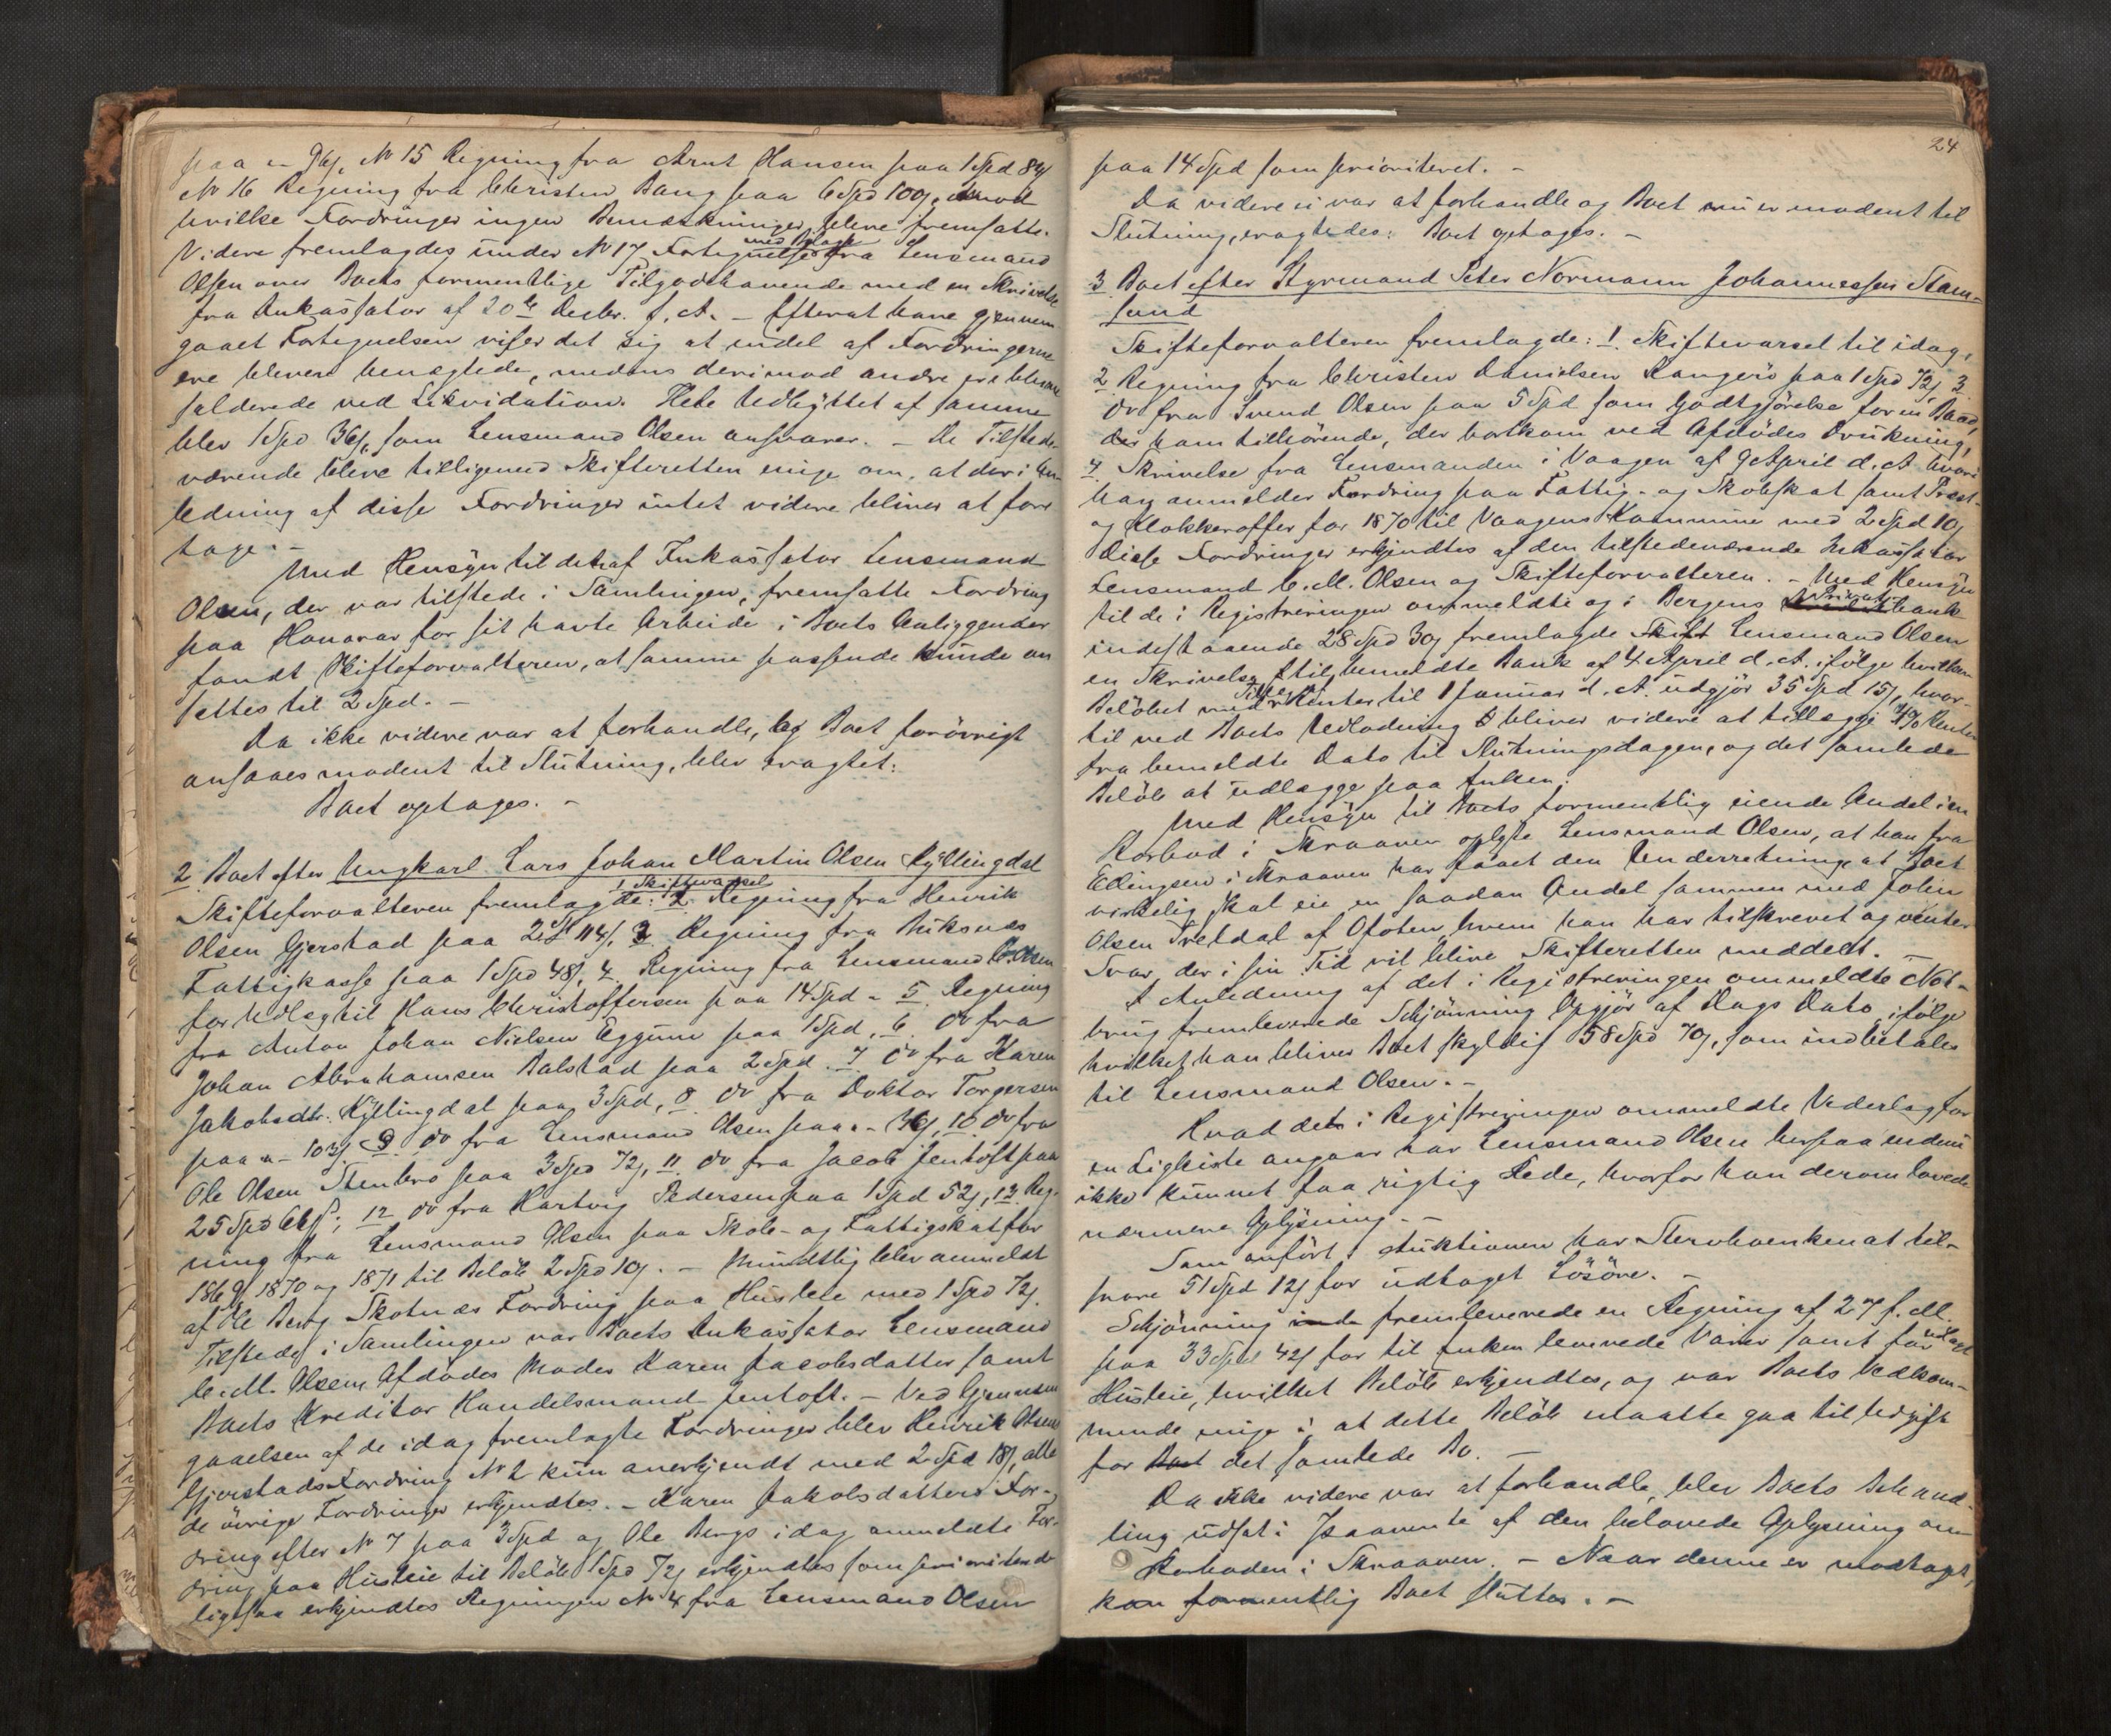 paa " 96ß, N 15 Regning fra Arnt Hansen paa 1 Spd 84ß
N 16 Regning fra Christen Bang paa 6 Spd 100ß, imod
hvilke Fordringer ingen Bemærkninger bleve fremsatte.
Videre fremlagdes under N 17 Fortegnelse med Bilage fra Lensmand
Olsen over Boets formentlige Tilgodehavende med en Skrivelse
fra Inkassator af 20de Decbr. f. A. – Efterat have gjennem
gaaet Fortegnelsen viser det sig at endel af Fordringerne
ere blevne benægtede, medens derimod andre ere blevne
salderede ved Likvidation. Hele Udbyttet af samme
blev 1 Spd 36ß, som Lensmand Olsen ansvarer. – De Tilstede-
værende bleve tilligemed Skifteretten enige om, at der i An-
ledning af disse Fordringer intet videre bliver at fore
tage. –
Med Hensyn til det af Inkassator Lensmand
Olsen, der var tilstede i Samlingen, fremsatte Fordring
paa Honorar for sit havte Arbeide i Boets Anliggender
fandt Skifteforvalteren, at samme passende kunde an
sættes til 2 Spd. –
Da ikke videre var at forhandle, og Boet forøvrigt
ansaaes modent til Slutning, blev eragtet:
Boet optages. –
2 Boet efter Ungkarl Lars Johan Martin Olsen Kyllingdal
Skifteforvalteren fremlagde: 1 Skiftevarsel 2 Regning fra Henrik
Olsen Gjerstad paa 2 Spd 114ß, 3 Regning fra Buksnes
Fattigkasse paa 1 Spd 48ß, 4 Regning fra Lensmand C. Olsen
for Udlæg til Hans Christoffersen paa 14 Spd – 5 Regning
fra Anton Johan Nielsen Eggum paa 1 Spd, 6 do fra
Johan Abrahamsen Balstad paa 2 Spd. 7 do fra Karen
Jakobsdtr. Kyllingdal paa 3 Spd, 8 do fra Doktor Torgersen
paa " – 103ß 9 do fra Lensmand Olsen paa " – 36ß, 10 do fra
Ole Olsen Stenbro paa 3 Spd 72ß, 11 do fra Jacob Jentoft paa
25 Spd 66ß, 12 do fra Hartvig Pedersen paa 1 Spd 52ß, 13 Reg-
ning fra Lensmand Olsen paa Skole- og Fattigskat for
1869, 1870 og 1871 til Beløb 2 Spd 10ß. – Mundtlig blev anmeldt
af Ole Berg Skotnæs Fordring paa Husleie med 1 Spd 72ß.
Tilstede i Samlingen var Boets Inkassator Lensmand
C. M. Olsen, Afdødes Moder Karen Jacobsdatter samt
Boets Kreditor Handelsmand Jentoft. – Ved Gjennem
gaaelsen af de idag fremlagte Fordringer blev Henrik Olsens
Gjerstads Fordring N 2 kun anerkjendt med 2 Spd 18ß, alle
de øvrige Fordringer erkjendtes. – Karen Jakobsdatters For-
dring efter N 7 paa 3 Spd og Ole Bergs idag anmeldte For-
dring paa Husleie til Beløb 1 Spd 72ß erkjendtes som prioriterede
ligesaa erkjendtes Regningen N 4 fra Lensmand Olsen
24
paa 14 Spd som prioriteret. –
Da videre ei var at forhandle og Boet nu er modent til
Slutning, eragtedes: Boet optages. –
3 Boet efter Styrmand Peter Normann Johannessen Stam-
sund
Skifteforvalteren fremlagde: 1. Skiftevarsel til idag,
2 Regning fra Christen Danielsen Kangerø paa 1 Spd 72ß 3
do fra Svend Olsen paa 5 Spd som Godtgjørelse for en Baad,
der ham tilhørende, der bortkom ved Afdødes Drukning,
4 Skrivelse fra Lensmanden i Vaagen af 9 April d. A. hvori
han anmelder Fordring paa Fattig- og Skoleskat samt Præst-
og Klokkeroffer for 1870 til Vaagens Kommune med 2 Spd 10ß
Disse Fordringer erkjendtes af den tilstedeværende Inkassator
Lensmand C. M. Olsen og Skifteforvalteren. – Med Hensyn
til de i Registreringen ommeldte og i Bergens Privatbank
indestaaende 28 Spd 30ß fremlagde Skift Lensmand Olsen
en Skrivelse til bemeldte Bank af 4 April d. A. ifølge hvilken
Beløbet med Tillæg Renter til 1 Januar d. A. udgjør 35 Spd 15ß, hvor-
til ved Boets Udlodning bliver videre at tillægge 4% Renter
fra bemeldte Dato til Slutningsdagen, og det samlede
Beløb at udlægge paa Enken.
Med Hensyn til Boets formentlig eiende Andel i en
Rorbod i Skraaven oplyste Lensmand Olsen, at han fra
Ellingsen i Skraaven har faaet den Underretning, at Boet
virkelig skal eie en saadan Andel sammen med John
Olsen Tveldal af Ofoten, hvem han har tilskrevet og venter
Svar, der i sin Tid vil blive Skifteretten meddelt. –
I Anledning af det i Registreringen ommeldte Not-
brug fremleverede Schjønning Opgjør af Dags Dato, ifølge
hvilket han bliver Boet skyldig 58 Spd 70ß, som indbetales
til Lensmand Olsen. –
Hvad det i Registreringen ommeldte Vederlag for
en Ligkiste angaar har Lensmand Olsen herpaa endnu
ikke kunnet faa rigtig Rede, hvorfor han derom lovede
nærmere Oplysning. –
Som anført i Auktionen har Stervboenken at til-
svare 51 Spd 12ß for udtaget Løsøre. –
Schjønning fremleverede en Regning af 27 f. M.
paa 33 Spd 42ß for til Enken leverede Varer samt for udlagt
Husleie, hvilket Beløb erkjendtes, og var Boets Vedkom-
mende enige i, at dette Beløb maatte gaa til Udgift
for Boet det samlede Bo. –
Da ikke videre var at forhandle, blev Boets Behand-
ling udsat i Paavente af den belovede Oplysning om
Rorboden i Skraaven. – Naar denne er modtaget,
kan formentlig Boet sluttes. –